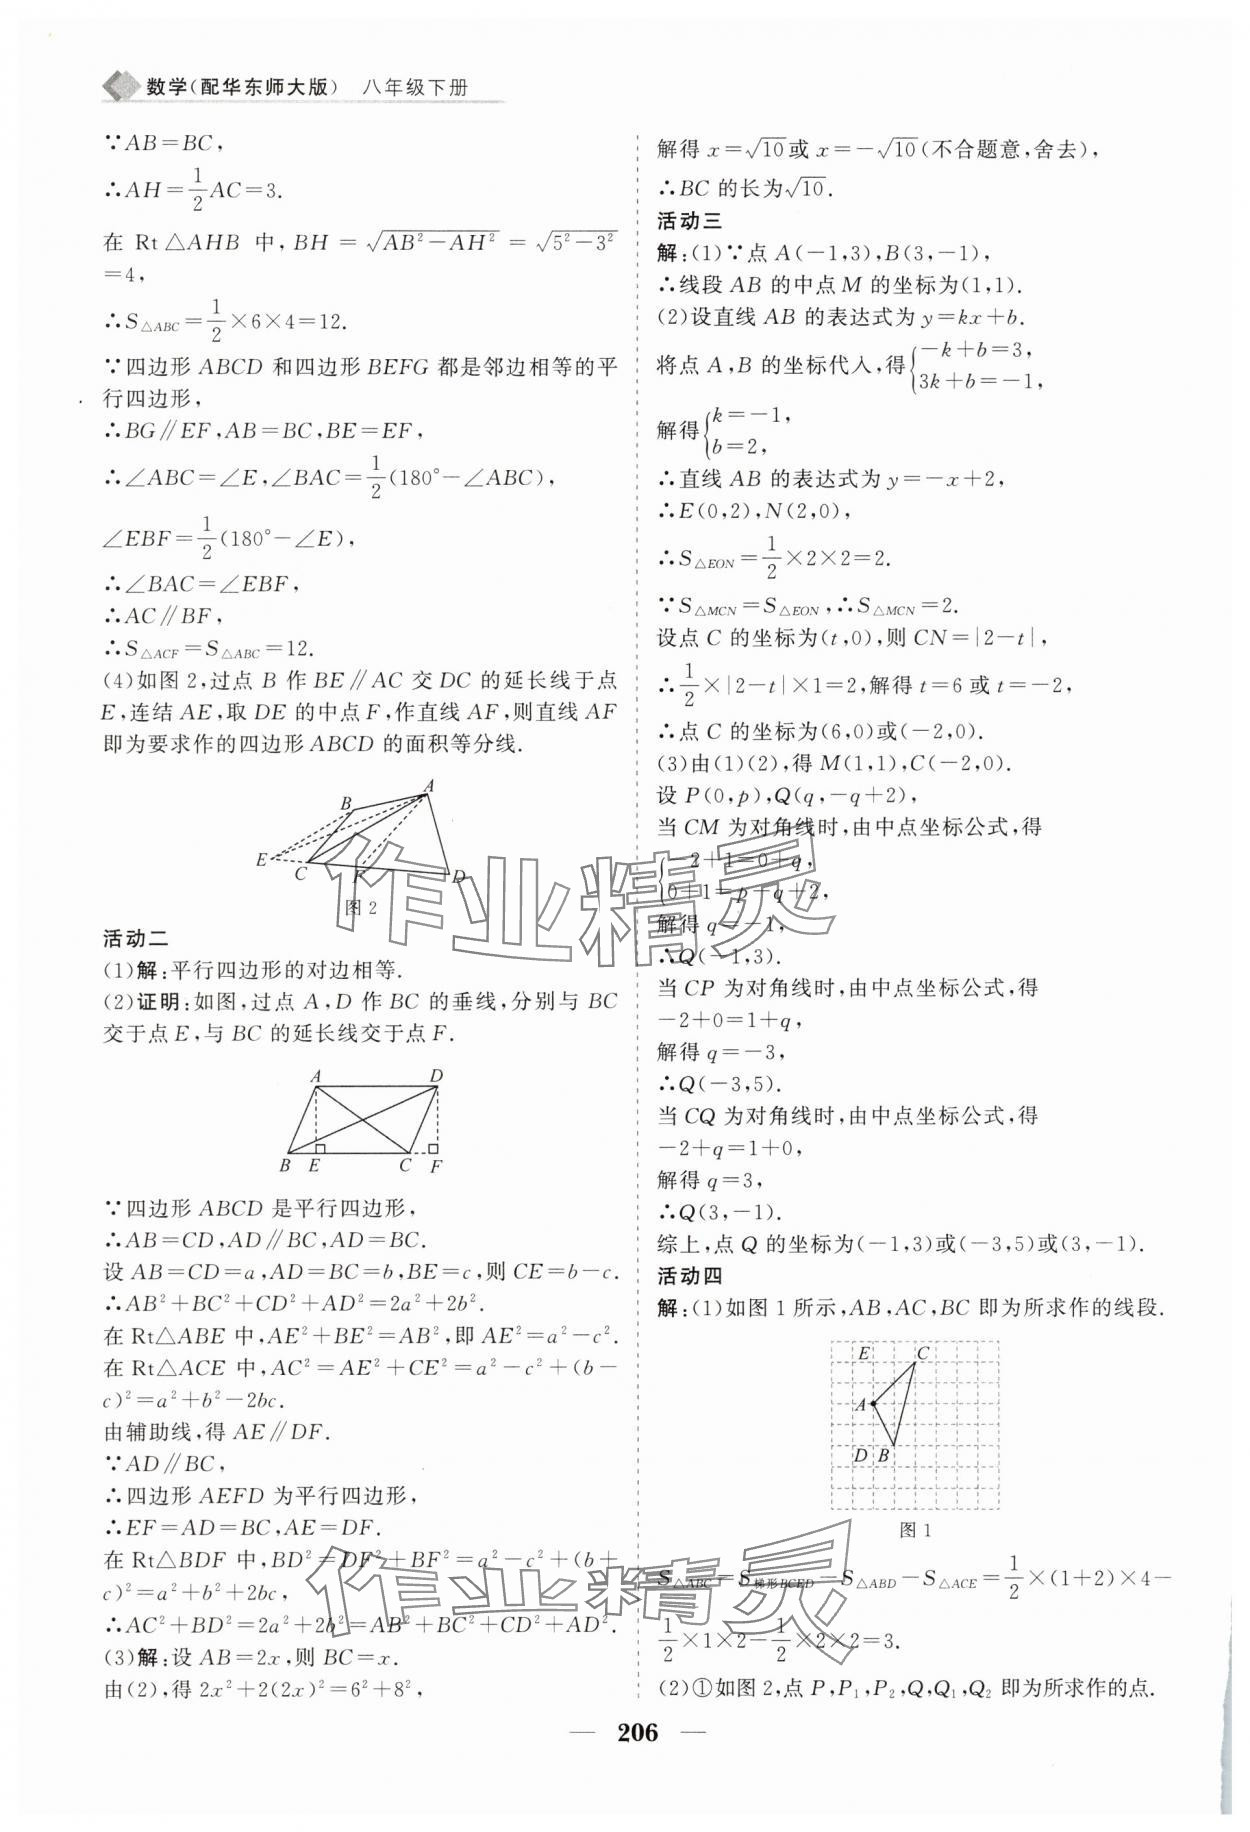 数学(配华东师大版) 八年级下册
∵AB=BC,
∴AH=1/2AC=3.
在 Rt△AHB 中,BH=√(AB²-AH²)=√(5²-3²)
=4,
∴S△ABC=1/2×6×4=12.
∵四边形 ABCD 和四边形 BEFG 都是邻边相等的平
行四边形,
∴BG∥EF,AB=BC,BE=EF,
∴∠ABC=∠E,∠BAC=1/2(180°-∠ABC),
∠EBF=1/2(180°-∠E),
∴∠BAC=∠EBF,
∴AC∥BF,
∴S△ACF=S△ABC=12.
(4)如图 2,过点 B 作 BE∥AC 交 DC 的延长线于点
E,连结 AE,取 DE 的中点 F,作直线 AF,则直线 AF
即为要求作的四边形 ABCD 的面积等分线.
A
B
E
C
F
D
图 2
活动二
(1)解:平行四边形的对边相等.
(2)证明:如图,过点 A,D 作 BC 的垂线,分别与 BC
交于点 E,与 BC 的延长线交于点 F.
A D
B E C F
∵四边形 ABCD 是平行四边形,
∴AB=CD,AD∥BC,AD=BC.
设 AB=CD=a,AD=BC=b,BE=c,则 CE=b-c.
∴AB²+BC²+CD²+AD²=2a²+2b².
在 Rt△ABE 中,AE²+BE²=AB²,即 AE²=a²-c².
在 Rt△ACE 中,AC²=AE²+CE²=a²-c²+(b-
c)²=a²+b²-2bc.
由辅助线,得 AE∥DF.
∵AD∥BC,
∴四边形 AEFD 为平行四边形,
∴EF=AD=BC,AE=DF.
在 Rt△BDF 中,BD²=DF²+BF²=a²-c²+(b+
c)²=a²+b²+2bc,
∴AC²+BD²=2a²+2b²=AB²+BC²+CD²+AD².
(3)解:设 AB=2x,则 BC=x.
由(2),得 2x²+2(2x)²=6²+8²,
解得 x=√10或 x=-√10(不合题意,舍去),
∴BC 的长为√10.
活动三
解:(1)∵点 A(-1,3),B(3,-1),
∴线段 AB 的中点 M 的坐标为(1,1).
(2)设直线 AB 的表达式为 y=kx+b.
将点 A,B 的坐标代入,得{-k+b=3,
3k+b=-1,
解得{k=-1,
b=2,
∴直线 AB 的表达式为 y=-x+2,
∴E(0,2),N(2,0),
∴S△EON=1/2×2×2=2.
∵S△MCN=S△EON,∴S△MCN=2.
设点 C 的坐标为(t,0),则 CN=|2-t|,
∴1/2×|2-t|×1=2,解得 t=6 或 t=-2,
∴点 C 的坐标为(6,0)或(-2,0).
(3)由(1)(2),得 M(1,1),C(-2,0).
设 P(0,p),Q(q,-q+2),
当 CM 为对角线时,由中点坐标公式,得
{-2+1=0+q,
0+1=p-q+2,
解得 q=-1,
∴Q(-1,3).
当 CP 为对角线时,由中点坐标公式,得
-2+0=1+q,
解得 q=-3,
∴Q(-3,5).
当 CQ 为对角线时,由中点坐标公式,得
-2+q=1+0,
解得 q=3,
∴Q(3,-1).
综上,点 Q 的坐标为(-1,3)或(-3,5)或(3,-1).
活动四
解:(1)如图 1 所示,AB,AC,BC 即为所求作的线段.
E C
A
D B
图 1
S△ABC=S梯形BCED-S△ABD-S△ACE=1/2×(1+2)×4-
1/2×1×2-1/2×2×2=3.
(2)①如图 2,点 P,P₁,P₂,Q,Q₁,Q₂ 即为所求作的点.
— 206 —
作业精灵
作业精灵